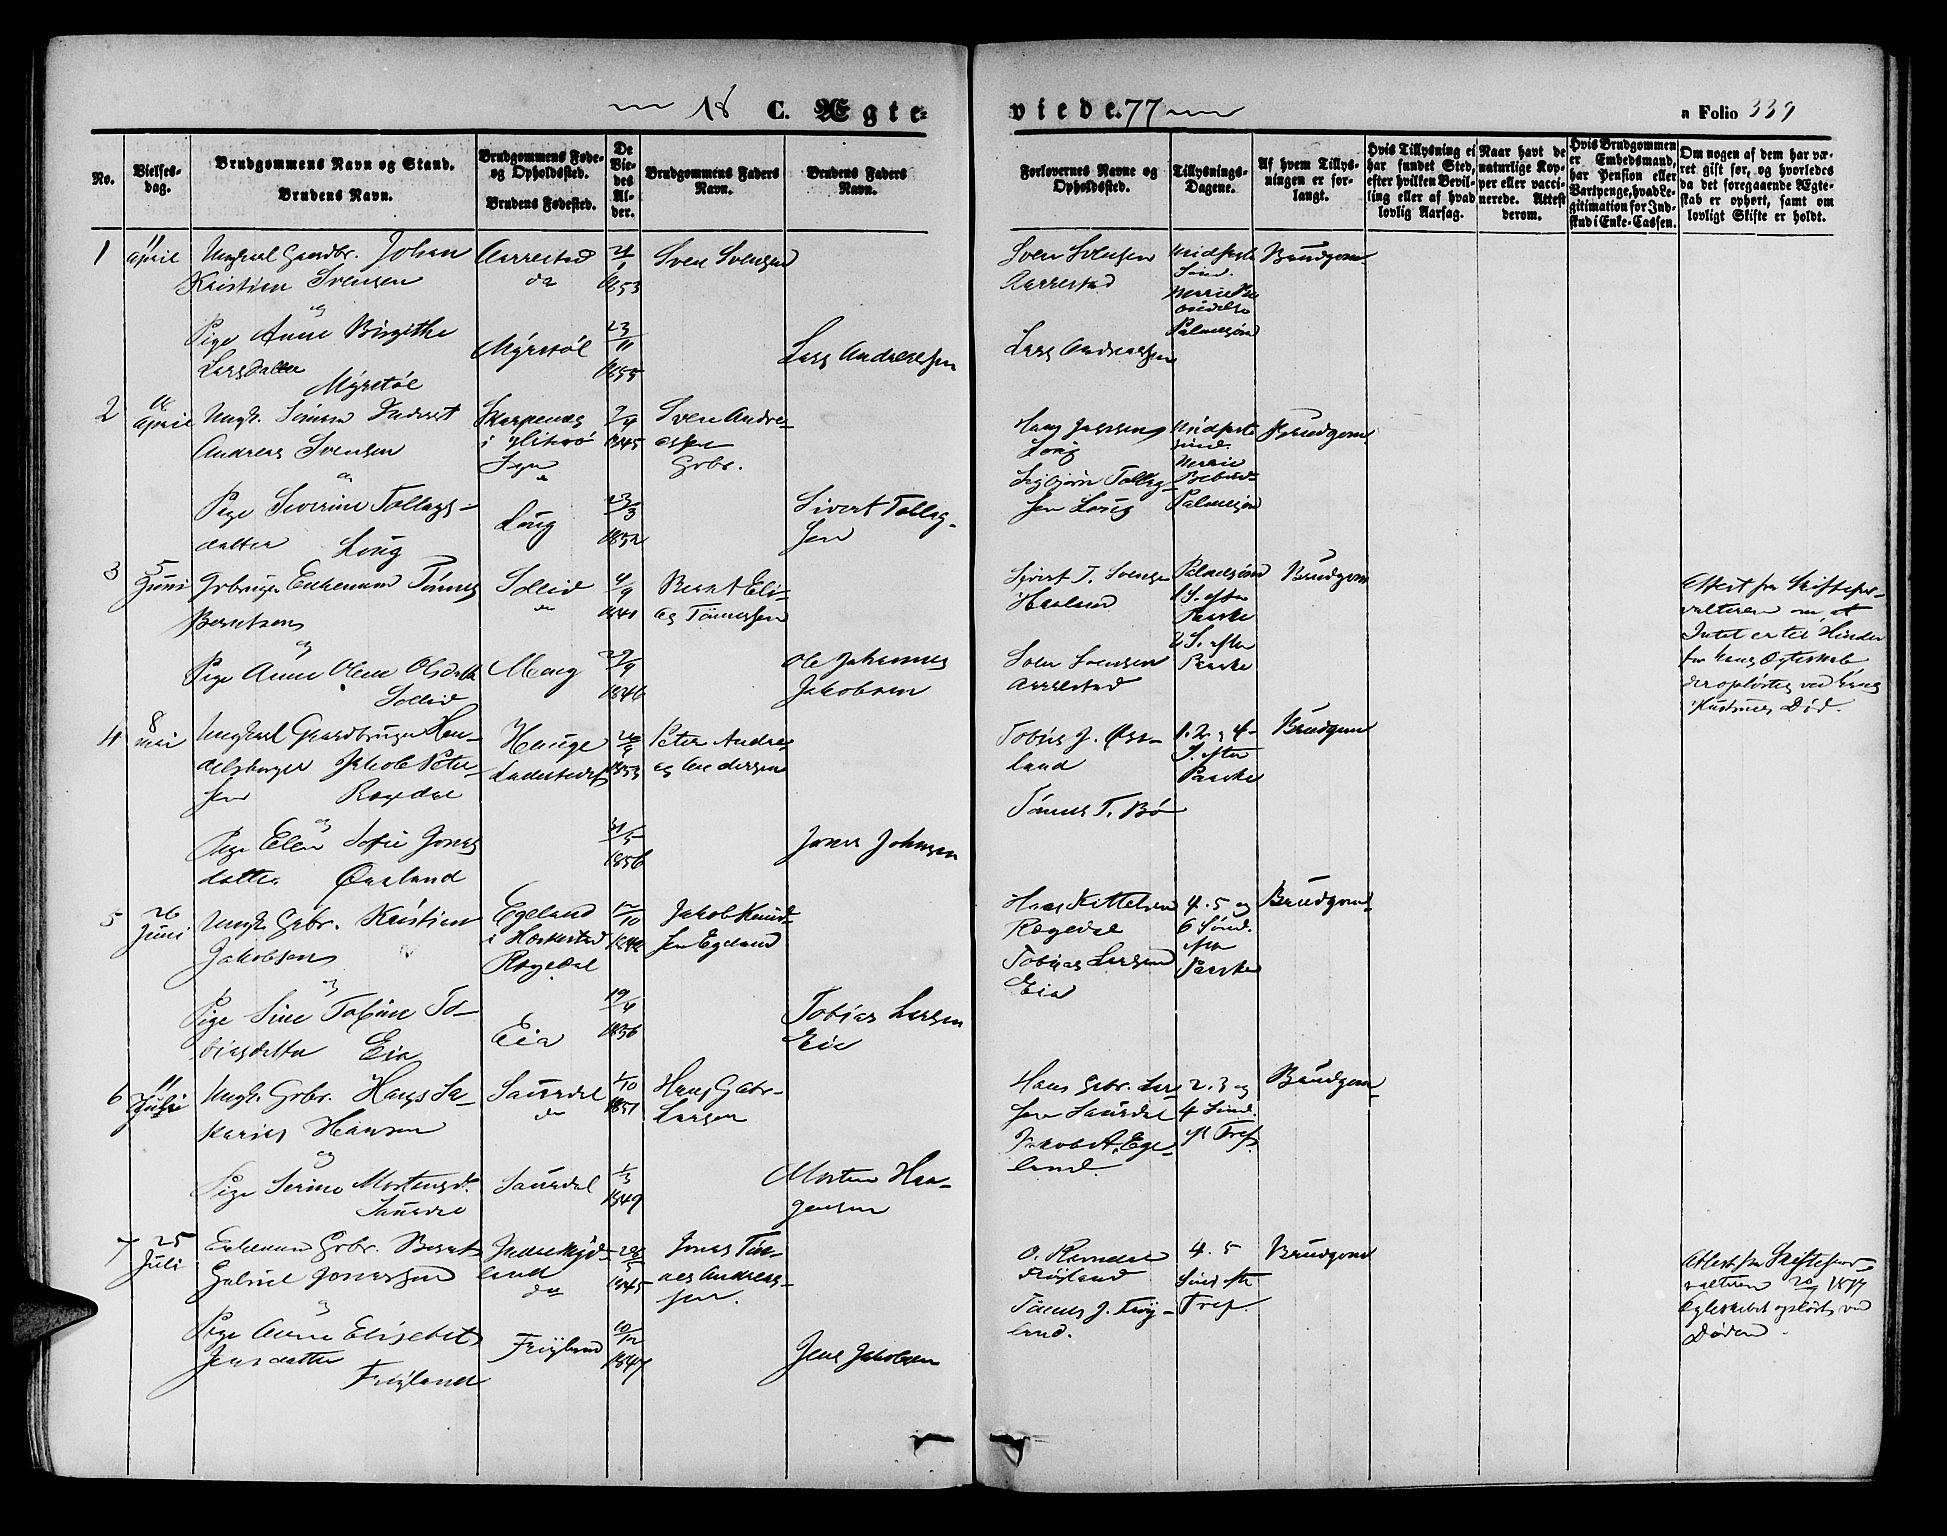 18 C. Ægte-
viede. 77
a Folio 339
No.
Vielses-
dag.
Brudgommens Navn og Stand.
Brudens Navn.
Brudgommens Føde-
og Opholdssted.
Brudens Fødested.
De
Vie-
des
Al-
der.
Brudgommens Faders
Navn.
Brudens Faders
Navn.
Forlovernes Navne og
Opholdssted.
Tillysnings-
Dagene.
Af hvem Tillys-
ningen er for-
langt.
Hvis Tillysning ei
har fundet Sted,
efter hvilken Bevil-
ling eller af hvad
lovlig Aarsag.
Naar havt de
naturlige Kop-
per eller vacci-
nerede. Attest
derom.
Hvis Brudgommen
er Embedsmand,
har Pension eller
Vartpenge, hvad Le-
gitimation for Ind-
skud i Enke-Cassen.
Om nogen af dem har væ-
ret gift før, og hvorledes
da det foregaaende Ægte-
skab er ophørt, samt om
lovligt Skifte er holdt.
1
11
April
Ungkarl Gaardbr. Johan
Kristian Svensen
og
Pige Anne Birgithe
Larsdatter
Myrstøl
Aarrestad
do
Myrstøl
1853
23/11
1855
Sven Svensen
Lars Andreassen
Sven Svensen
Aarrestad
Lars Andreassen
Midfaste
Sønd.
Marie Be-
budelse
Palmesønd
Brudgom
2
April
Ungk. Simon
Andreas Svensen
og
Pige Severine Tollags-
datter Loug
i Hitterø
Sogn
Loug
1845
23/3
1852
Sven Andre-
assen
Grbr.
Sivert Tollag-
sen
Loug
Sigbjørn Tollag-
sen Loug
Midfaste
Sønd.
Marie
Bebud-
Palmesønd
Brudgom
3
5
Juni
Grbruger Enkemand Tønnes
Berntsen
og
Pige Anne Olene Olsdatter
Sollid
Sollid
Moug
4/9
1841
1846
Bernt Eli-
as Tønnessen
Ole Johannes
Jakobsen
Sivert T. Svensen
Haaland
Sven Svensen
Aarrestad
Palmesønd
1 S. efter
Paaske
2 S. efter
Paaske
Brudgom
Attest fra Skiftefor-
valteren om, at
Intet er til Hinder
for hans Ægteskab
der opløstes ved hans
Hustrues Død.
4
8
Mai
Ungkarl Gaardbruger Han-
delsborger Jakob Peter-
sen Rægedal
og
Pige Elen Sofie Jonas
datter Øveland
Hauge
Ladested
1853
31/5
1856
Peter Andre-
as Andersen
Jonas Johnsen
Tobias J. Øve-
land
Tønnes T. Bø
1. 2. og 4.
S. efter
Paaske
Brudgom
5
26
Juni
Ungk. Grbr. Kristian
Jakobsen
og
Pige Sine Tobine To-
biasdatter Eia
Egeland
i Heskestad
Rægedal
Eia
19/4
1856
Jakob Knud-
sen Egeland
Tobias Larsen
Eie
Hans Kittelsen
Rægedal
Tobias Larsen
Eia
4. 5 og
6 Sønd.
efter
Paaske
Brudgom
6
11
Juli
Ungk. Grbr. Hans Sa-
karias Hansen
og
Pige Serine Mortensd.
Saurdal
Saurdal
do
Saurdal
1/10
1851
1/3
1849
Hans Gabr.
Larsen
Morten Haa-
gensen
Hans Gabr. Lar-
sen Saurdal
Jakob A. Ege-
land.
2. 3 og
4 Sønd.
ef Tref.
Brudgom
7
25
Juli
Enkemand Grbr. Bernt
Gabriel Jonassen
og
Pige Anne Elisabet
Jensdatter
Frøyland
land
do
Frøyland
1845
10/12
1847
Jonas Tøn-
nes Andreas-
sen.
Jens Jakobsen
Frøyland
Tønnes J. Frøy-
land.
4. 5
Sønd eft
Tref.
Brudgom
Attest fra Skiftefor-
valteren 1877
Egteskabet opløst ved
Døden.